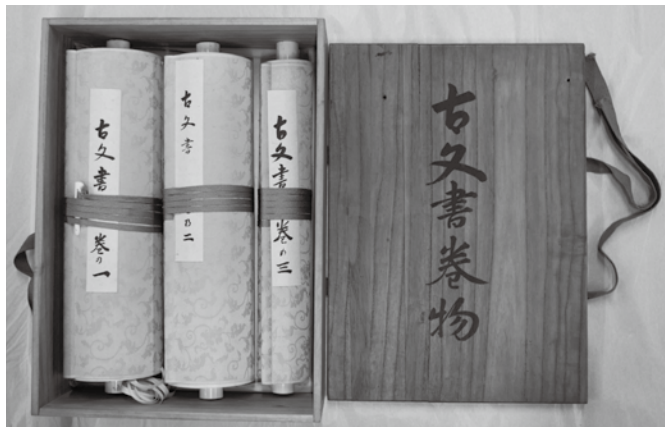 古文書 巻の一
古文書 の二
古文書巻の三
古文書巻物